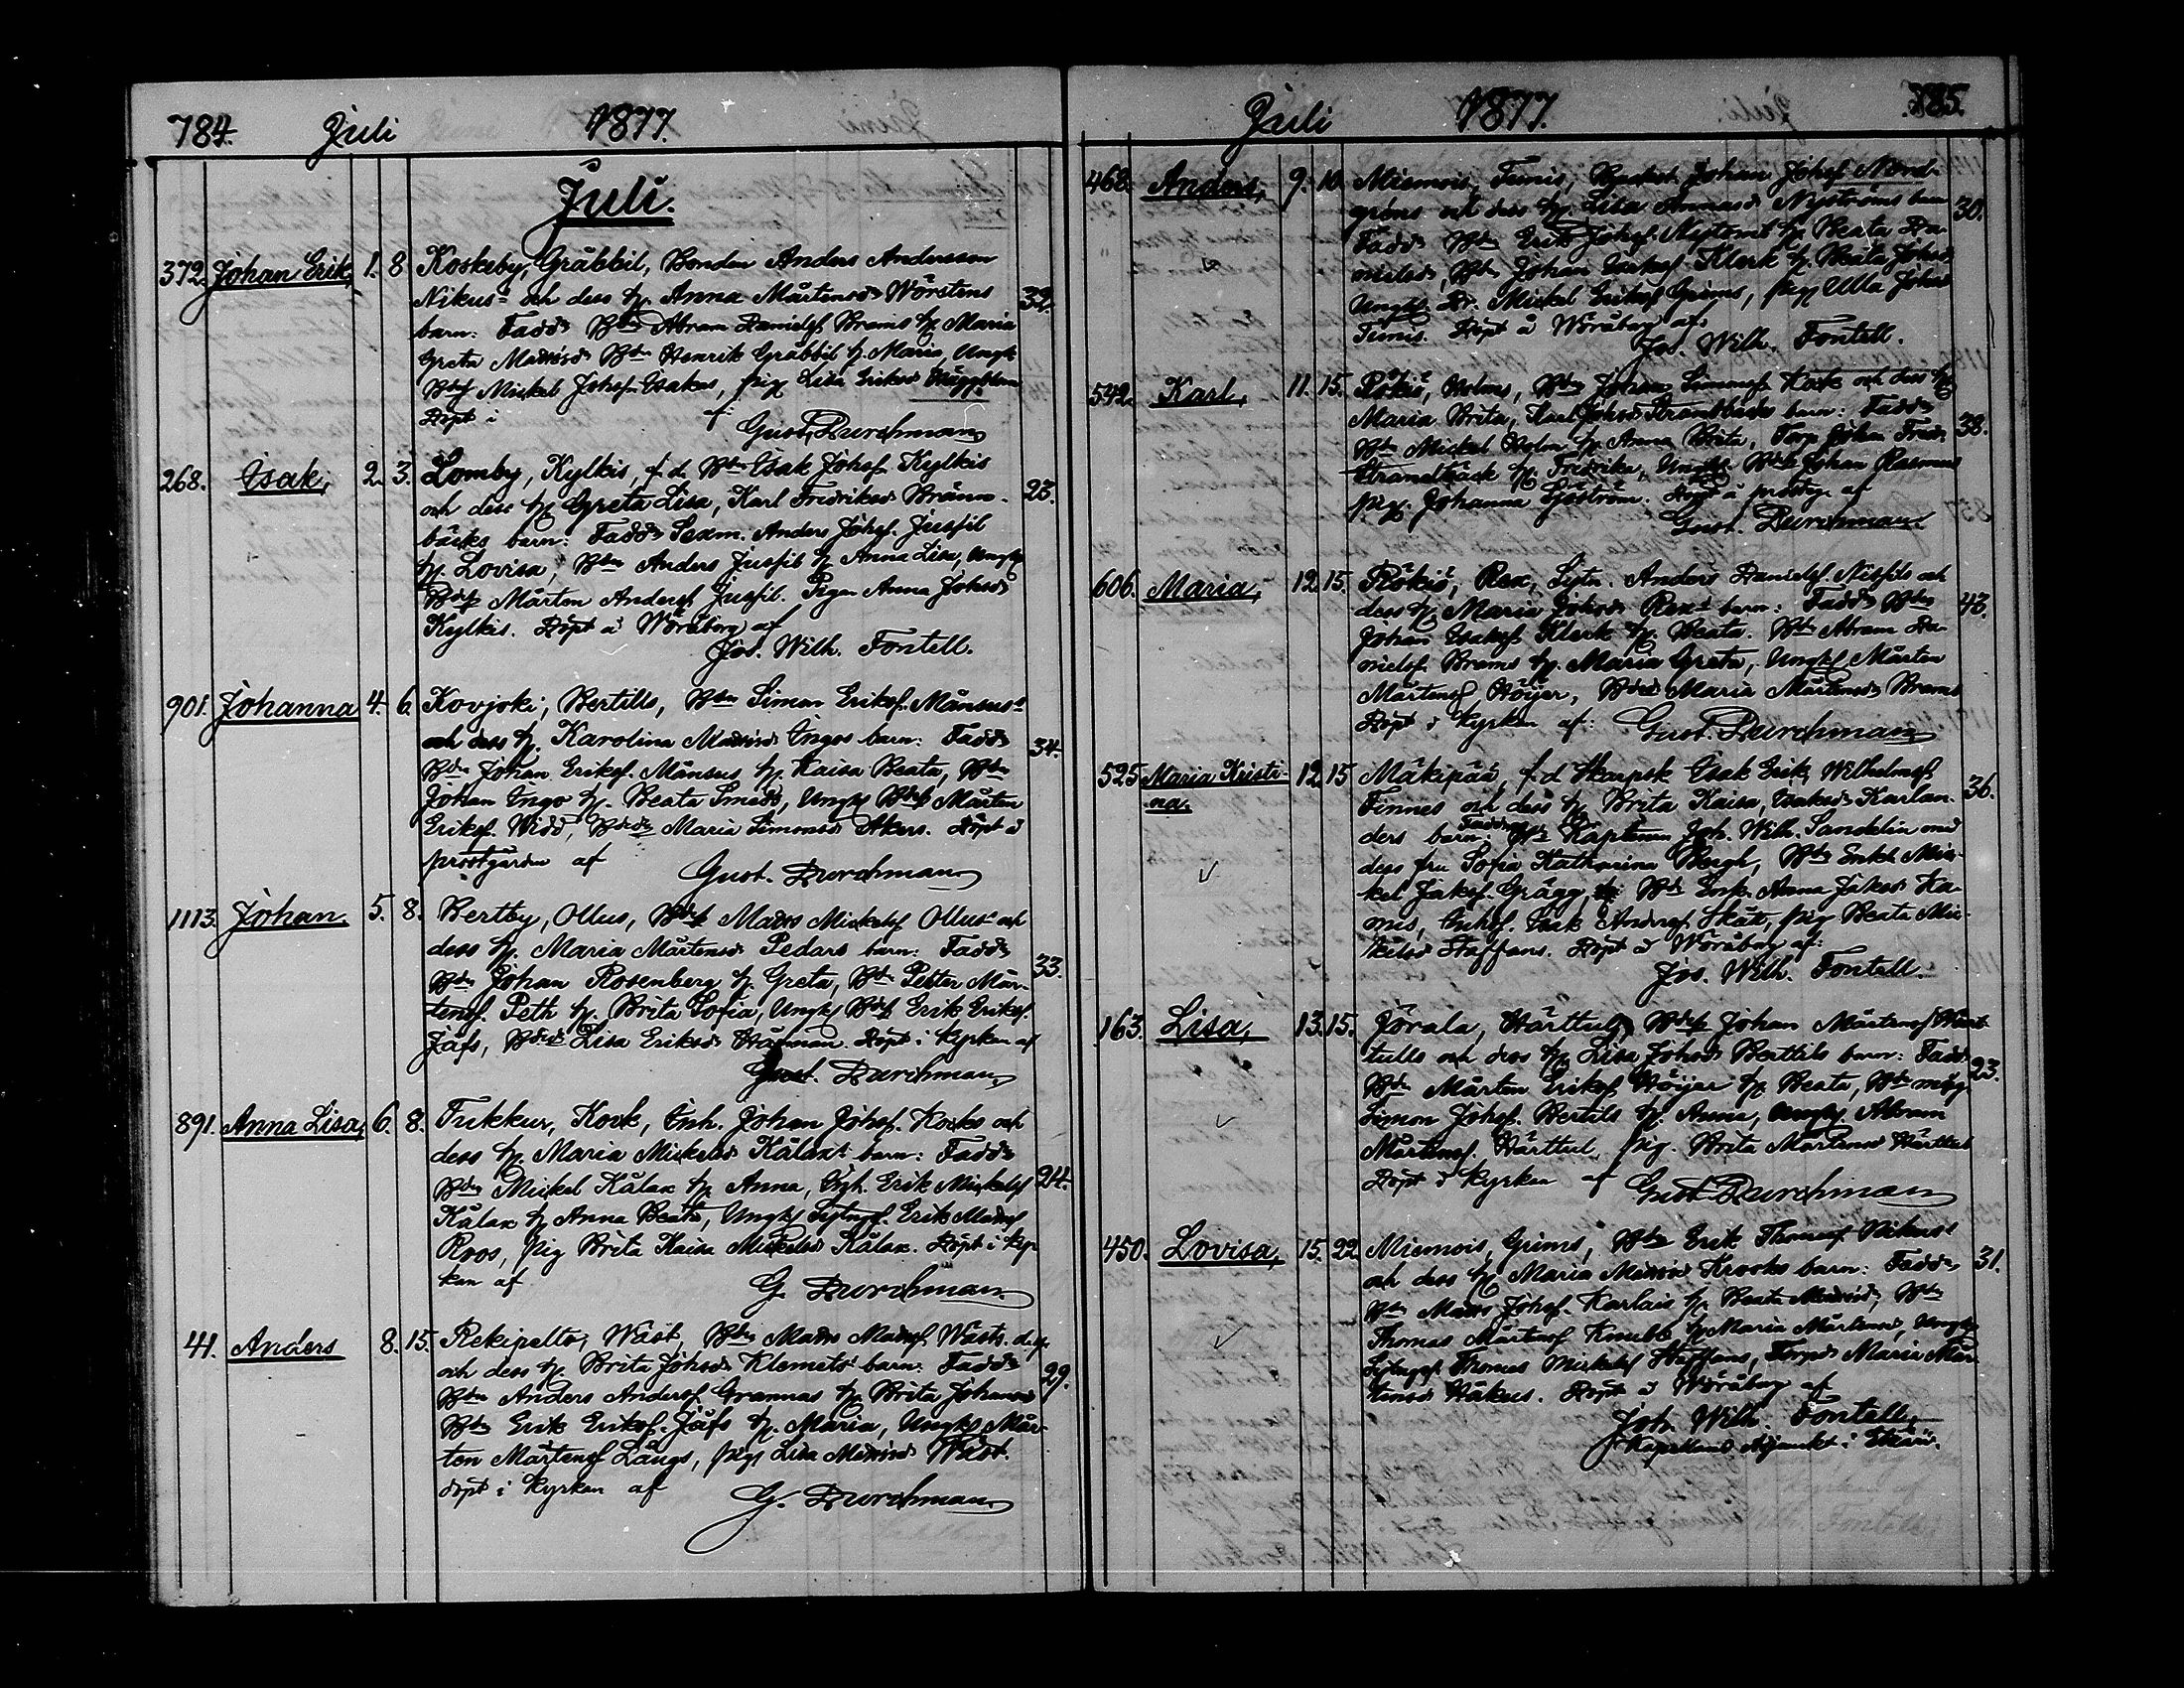 784. Juli 1877.
Juli.
372. Johan Erik, 1. 8. Koskeby, Gräbbil, Bonden Anders Andersson
Nikus och dess h. Anna Mårtensdr Wörstens 32.
barn: Fadd. Bdn Abram Danielsf. Brams h. Maria
Greta Bdn Henrik Gräbbil h. Maria, Ungk
Mickel Johsf. Isakas, pig Lisa Eriksd
Döpt i af:
Gust. Durchman
268. Isak, 2. 3. Lomby, Kylkis, f.d. Bdn Isak Johsf. Kylkis
och dess h. Greta Lisa, Karl Fredriksd Bränn- 23.
bäcks barn: Fadd. Sexm. Anders Johsf. Jusfil
h. Lovisa, Bdn Anders Jusfil h. Anna Lisa, Ungk
Mårten Andersf. Jusfil. Pigan Anna Johsd
Kylkis. Döpt å Wöråberg af
Jos. Wilh. Fontell.
901. Johanna 4. 6. Kovjoki, Bertills, Bdn Simon Eriksf. Månsus
och dess h. Karolina Ingos barn: Fadd. 34.
Bdn Johan Eriksf. Månsus h. Kaisa Beata, Bdn
Johan Ingo h. Beata Simsd, Ungk Mårten
Eriksf. Widd, Maria Simonsd Akers. Döpt å
prostgården af
Gust. Durchman
1113. Johan. 5. 8. Bertby, Ollus, Mats Mickelsf. Ollus och
dess h. Maria Mårtensd Pedars barn: Fadd.
Bdn Johan Rosenberg h. Greta, Bdn Petter Mår- 33.
tensf. Peth h. Brita Sofia, Ungk Erik Eriksf.
Jåfs, Lisa Eriksd Hägman. Döpt i kyrkan af
Gust. Durchman
891. Anna Lisa, 6. 8. Tukkur, Kock, Inh. Johan Johsf. Kocks och
dess h. Maria Mickelsd Kålax barn: Fadd.
Bdn Mickel Kålax h. Anna, Erik Mickelsf 24.
Kålax h. Anna Beata, Ungk Erik Matsf
Roos, pig Brita Kaisa Mickelsd Kålax. Döpt i kyr-
kan af
G. Durchman
41. Anders 8. 15. Rekipelto, Wäst, Bdn Mats Matsf. Wästs d.y.
och dess h. Brita Johsd Klemets barn: Fadd. 29.
Bdn Anders Andersf. Grannas h. Brita Johansd
Bdn Erik Eriksf. Jåfs h. Maria, Ungk Mår-
ten Mårtensf Långs, pig Lisa Wäst.
döpt i kyrkan af
G. Durchman
Juli 1877. 785.
468. Anders, 9. 10. Miemois, Timis, Johan Johsf. Nord-
gréns och dess h. Lisa Nyströms barn 30.
Fadd. Bdn Erik Johsf. h. Beata Da-
nielsd, Bdn Johan Isaksf. Klerk h. Beata Johsd
Ungk Dr. Mickel Eriksf Grims, pig Ulla Johsd
Timis. Döpt å Wöråberg af:
Jos. Wilh. Fontell.
542. Karl, 11. 15. Rökiö, Holms, Bdn Johan Simonsf. Kock och dess h
Maria Brita, Karl Johsd Strandbäcks barn: Fadd.
Bdn Mickel Holm h. Anna Brita, Torp Johan Fred. 38.
Strandbäck h. Fredrika, Ungk Johan Rasmus
pig. Johanna Sjöström. Döpt å prostg. af
Gust. Durchman
606. Maria, 12. 15. Rökiö, Rex, Anders Danielsf. Nissfils och
dess h. Maria Johsd Rex barn: Fadd. Bdn 43.
Johan Isaksf. Klerk h. Beata. Bdn Abram Da-
nielsf. Brams h. Maria Greta, Ungk Mårten
Mårtensf Höijer, Maria Mårtensd Brams
Döpt i kyrkan af: Gust. Durchman
525. Maria Kristi- 12. 15. Mäkipää, f.d Skarpsk Isak Erik Wilhelmsf.
na. Finnes och dess h. Brita Kaisa, Isaksd Karlan- 36.
ders barn: Kaptenen Joh. Wilh. Sandelin med
dess fru Sofia Katharina Bergh, Bdn Enkl. Mic-
kel Jaksf. Grägg, Bdn Enk. Anna Jaksd Ka-
mis, Inhsf. Isak Andersf. Skatt, pig Beata Mic-
kelsd Staffans. Döpt å Wöråberg af:
Jos. Wilh. Fontell.
163. Lisa, 13. 15. Jörala, Härttuls, Johan Mårtensf Härt-
tulls och dess h. Lisa Johsd Berttils barn: Fadd. 23.
Bdn Mårten Eriksf. Höijer h. Beata, Bdn måg
Simon Johsf. Bertils h. Anna, Ungk Abram
Mårtensf. Härttul, pig. Brita Mårtensd Härttul
Döpt i kyrkan af Gust. Durchman
450. Lovisa, 15. 22. Miemois, Grims, Bdn Erik Thomsf Nikus
och dess h. Maria Krooks barn: Fadd. 31.
Bdn Mats Johsf. Karlais h. Beata Bdn
Thomas Mårtensf Knubb h Maria Mårtensd, Ungk
Thomas Mickelsf Staffans, Maria Mår-
tensd Håkus. Döpt å Wöråberg af
Joh. Wilh. Fontell,
Kapellans Adjunkt i